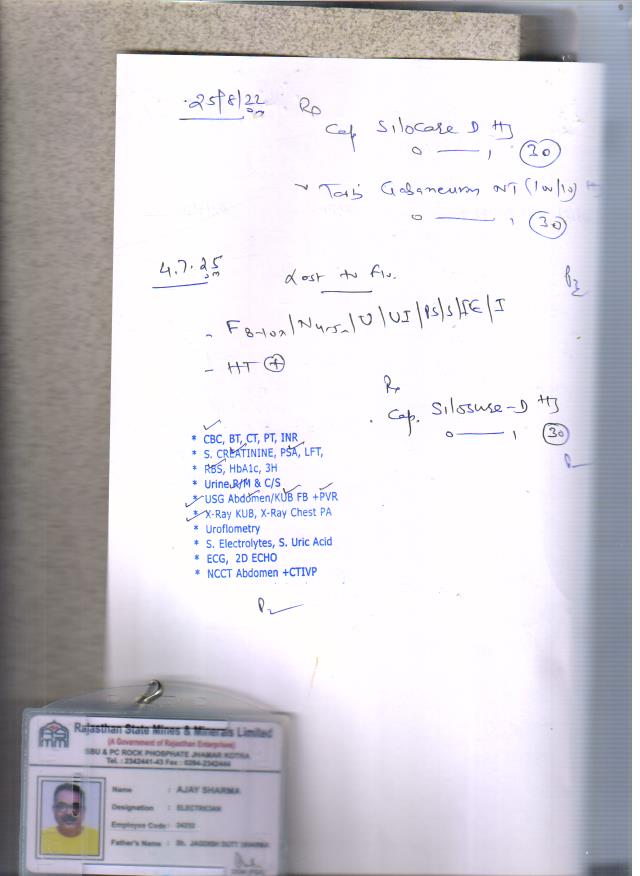 25/8/22
Rp
Cap Silocare D HS
0 — 1 30
Tab Gabaneuron NT (100/10)
0 — 1 30
4.7.25
Lost to F/u.
- F 8-10x / N 4-5x / U / UI / PS / S / IE / I
- HT +
Rp
Cap. Silosure-D HS
0 — 1 30
* CBC, BT, CT, PT, INR
* S. CREATININE, PSA, LFT,
* RBS, HbA1c, 3H
* Urine R/M & C/S
* USG Abdomen/KUB FB +PVR
* X-Ray KUB, X-Ray Chest PA
* Uroflometry
* S. Electrolytes, S. Uric Acid
* ECG, 2D ECHO
* NCCT Abdomen +CTIVP
Rajasthan State Mines & Minerals Limited
(A Government of Rajasthan Enterprises)
SBU & PC ROCK PHOSPHATE JHAMAR KOTRA
Tel. : 2342441-43 Fax : 0294-2342444
Name : AJAY SHARMA
Designation : ELECTRICIAN
Employee Code :
Father's Name : Sh. JAGDISH DUTT SHARMA